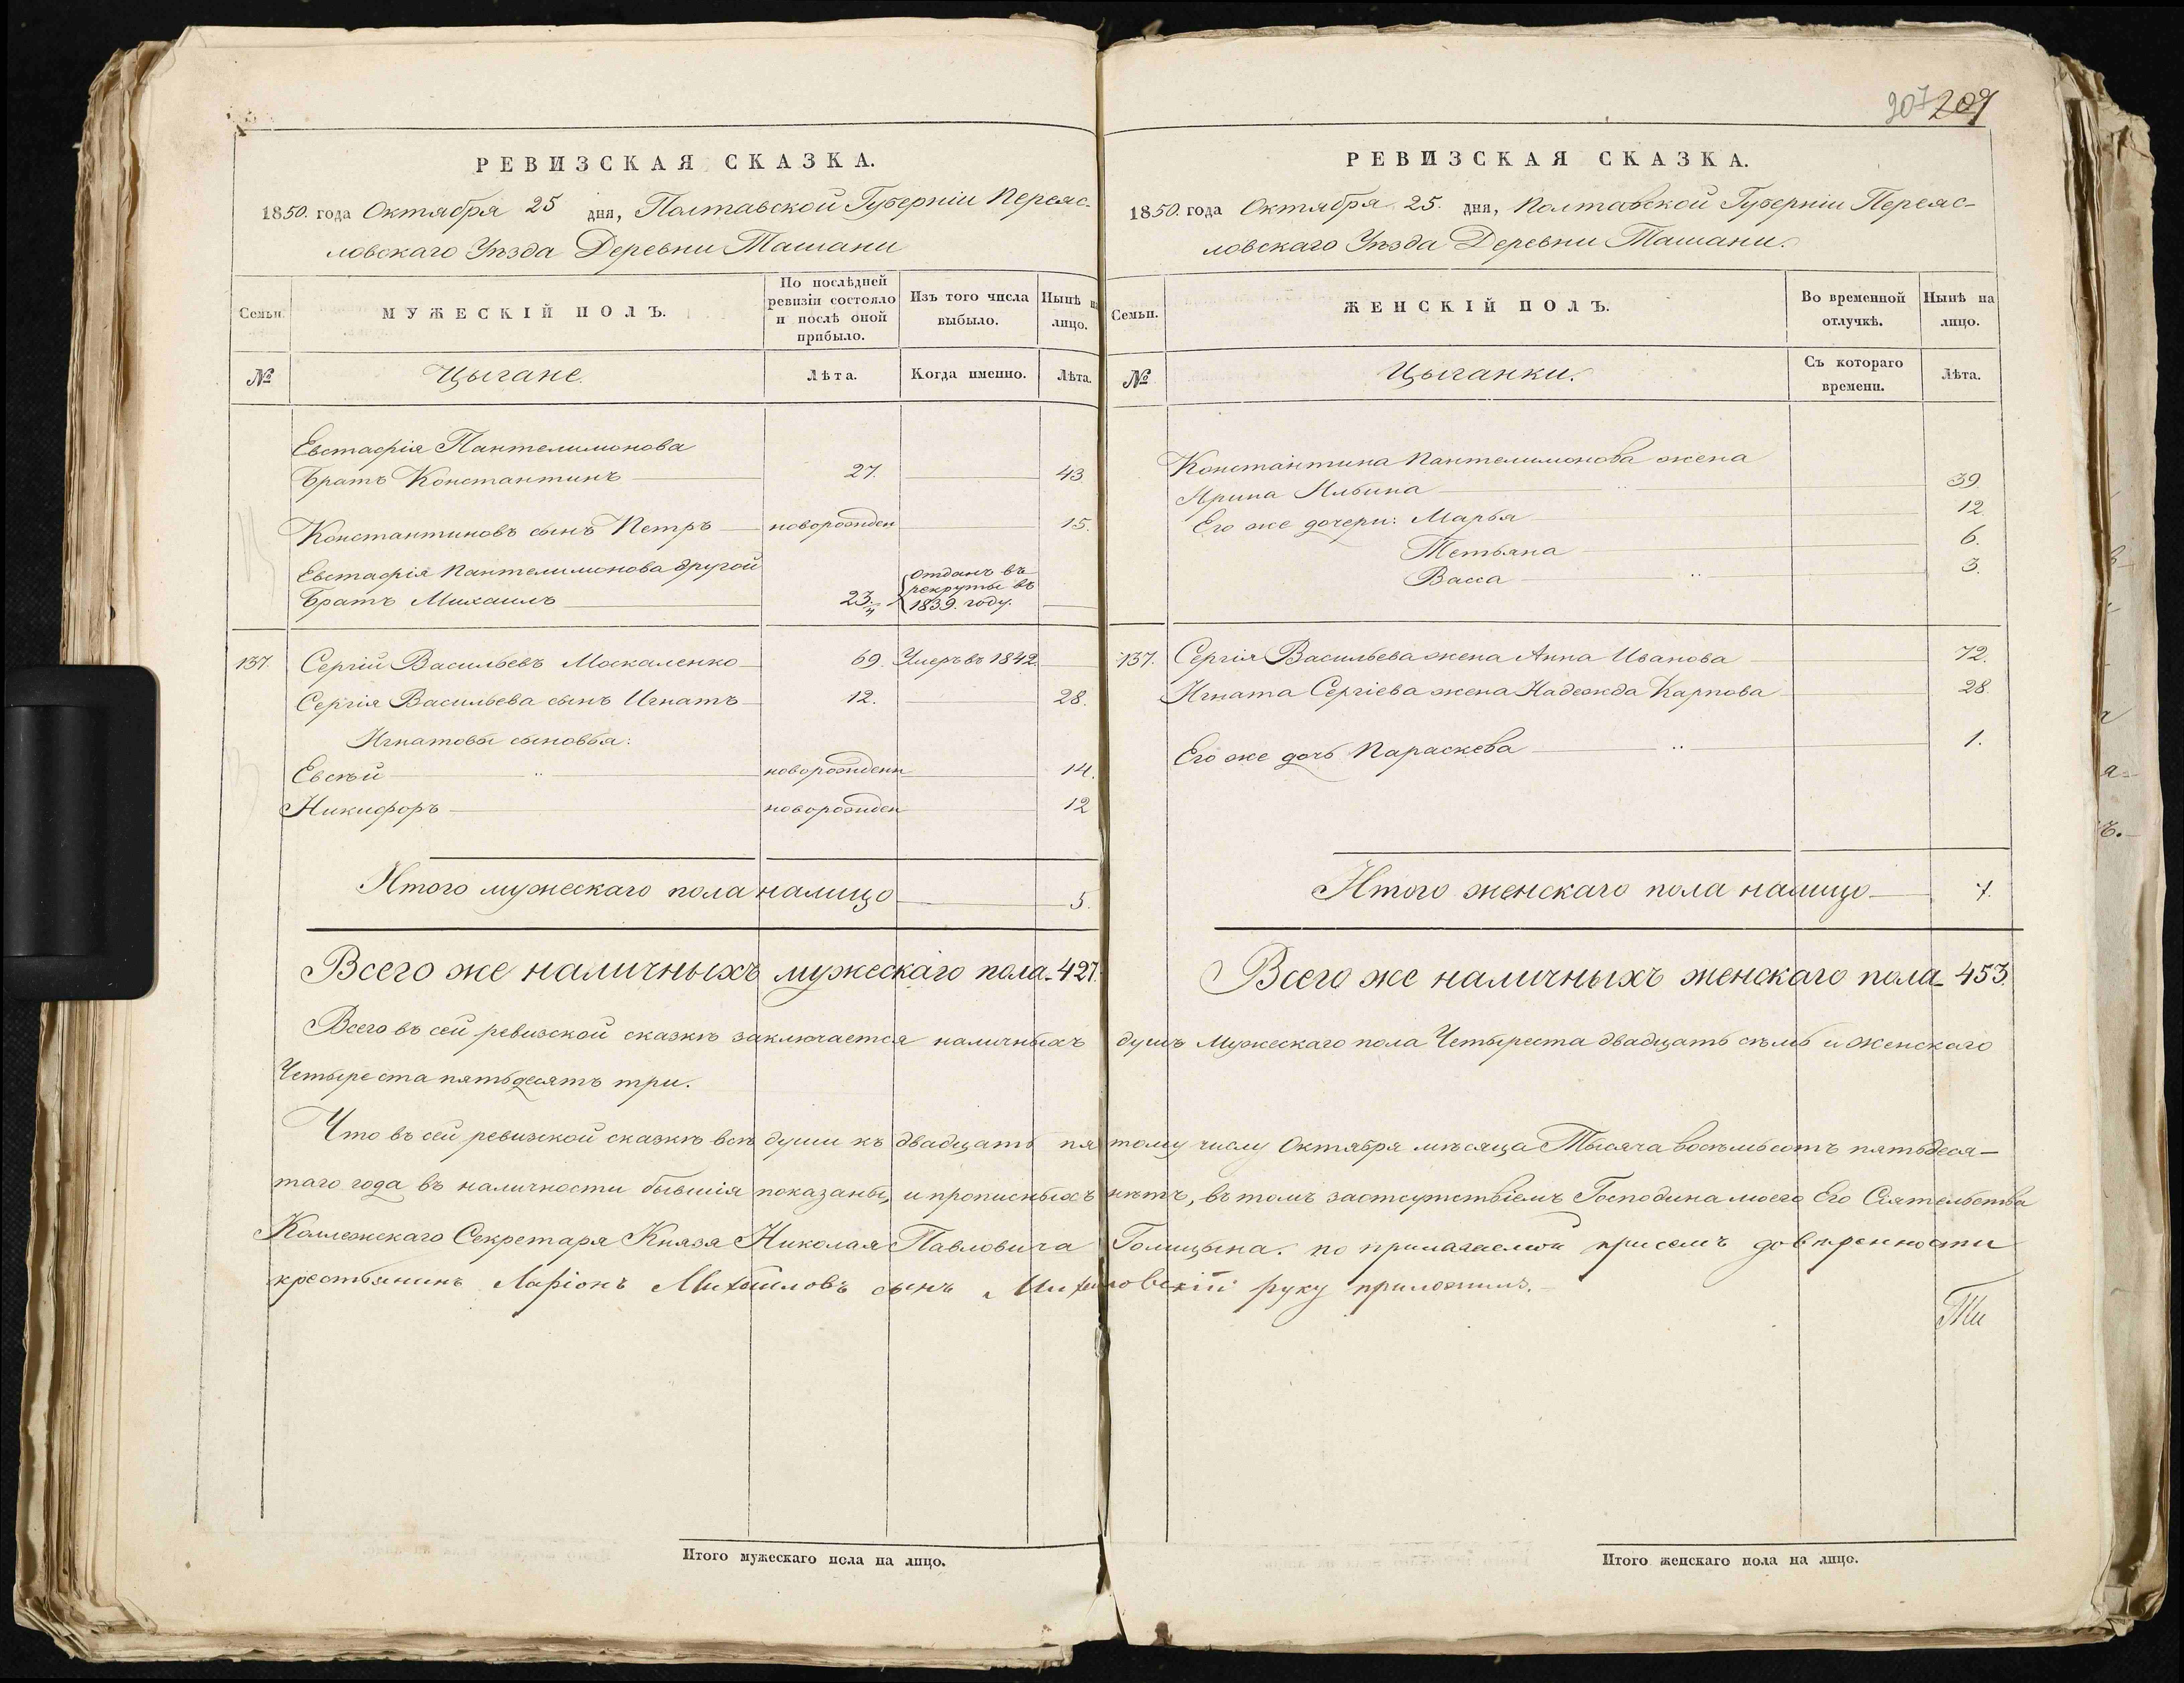 207 209
РЕВИЗСКАЯ СКАЗКА.
1850. года Октября 25 дня, Полтавской Губерніи Переяс-
ловскаго Уѣзда Деревни Ташани
Семьи.
МУЖЕСКІЙ ПОЛЪ.
По послѣдней ревизіи состояло и послѣ оной прибыло.
Изъ того числа выбыло.
Нынѣ на лицо.
№
Цыгане.
Лѣта.
Когда именно.
Лѣта.
Евстафія Пантелимонова
братъ Константинъ 27. 43
Константиновъ сынъ Петръ новорожден 15.
Евстафія Пантелимонова другой
братъ Михаилъ 23. отданъ въ рекруты въ 1839. году.
137. Сергій Васильевъ Москаленко 69. Умеръ въ 1842.
Сергія Васильева сынъ Игнатъ 12. 28.
Игнатовы сыновья:
Евсѣй новорожденн 14.
Никифоръ новорожден 12
Итого мужескаго пола налицо 5.
Всего же наличныхъ мужескаго пола 427.
РЕВИЗСКАЯ СКАЗКА.
1850. года Октября 25. дня, Полтавской Губерніи Переяс-
ловскаго Уѣзда Деревни Ташани.
Семьи.
ЖЕНСКІЙ ПОЛЪ.
Во временной отлучкѣ.
Нынѣ на лицо.
№
Цыганки.
Съ котораго времени.
Лѣта.
Константина Пантелимонова жена
Ярина Ильина 39.
Его же дочери: Марья 12.
Тетьяна 6.
Васса 3.
137. Сергія Васильева жена Анна Иванова 72.
Игната Сергіева жена Надежда Карпова 28.
Его же дочь Параскева 1.
Итого женскаго пола налицо 7.
Всего же наличныхъ женскаго пола 453.
Всего въ сей ревизской сказкѣ заключается наличныхъ душъ Мужескаго пола Четыреста двадцать сѣмь и женскаго
Четыреста пятьдесятъ три.
Что въ сей ревизской сказкѣ всѣ души къ двадцать пятому числу Октября мѣсяца Тысяча восѣмьсотъ пятьдеся-
таго года въ наличности бывшія показаны, и прописныхъ нѣтъ, въ томъ заотсутствіемъ Господина моего Его Сіятельства
Коллежскаго Секретаря Князя Николая Павловича Голицына. по прилагаемой присемъ довѣренности
крестьянинъ Ларіонъ Михайловъ сынъ руку приложилъ.
Итого мужескаго пола на лицо.
Итого женскаго пола на лицо.